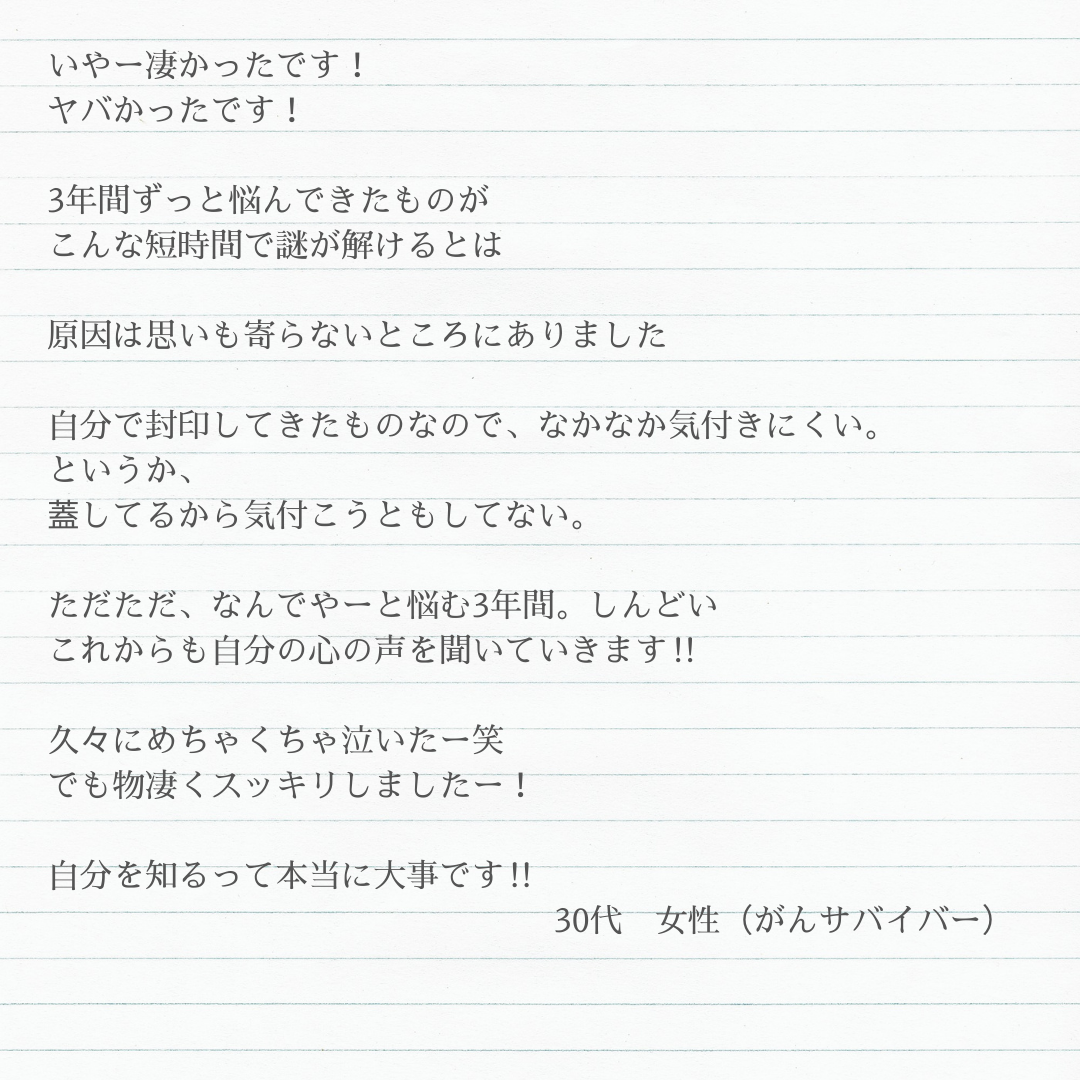 いやー凄かったです！
ヤバかったです！
3年間ずっと悩んできたものが
こんな短時間で謎が解けるとは
原因は思いも寄らないところにありました
自分で封印してきたものなので、なかなか気付きにくい。
というか、
蓋してるから気付こうともしてない。
ただただ、なんでやーと悩む3年間。しんどい
これからも自分の心の声を聞いていきます!!
久々にめちゃくちゃ泣いたー笑
でも物凄くスッキリしましたー！
自分を知るって本当に大事です!!
30代　女性（がんサバイバー）